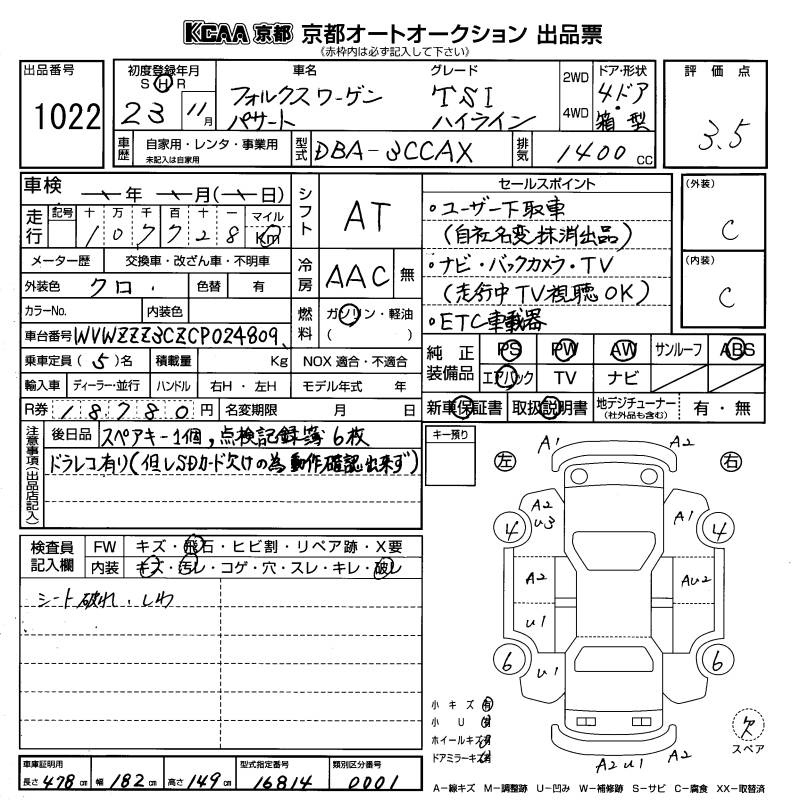 KCAA 京都 京都オートオークション 出品票
(赤枠内は必ず記入して下さい)
出品番号
1022
初度登録年月
S H R
23 11月
車名
フォルクスワーゲン
パサート
グレード
TSI
ハイライン
2WD
4WD
ドア・形状
4ドア
箱型
評価点
3.5
車歴
自家用・レンタ・事業用
未記入は自家用
型式
DBA-3CCAX
排気
1400 CC
車検
年 月( 日)
走行
記号 十 万 千 百 十 一 マイル
107728 Km
メーター歴 交換車・改ざん車・不明車
外装色 クロ 色替 有
カラーNo. 内装色
車台番号 WVWZZZ3CZCP024809
乗車定員 (5)名 積載量 Kg
輸入車 ディーラー・並行 ハンドル 右H・左H
R券 18780円 名変期限 月 日
シフト
AT
冷房
AAC 無
燃料
ガソリン・軽油
( )
NOX 適合・不適合
モデル年式 年
セールスポイント
・ユーザー下取車
(自社名変抹消出品)
・ナビ・バックカメラ・TV
(走行中TV視聴OK)
・ETC車載器
(外装)
C
(内装)
C
純正装備品
PS PW AW サンルーフ ABS
エアバック TV ナビ
新車保証書 取扱説明書 地デジチューナー(社外品も含む) 有・無
注意事項(出品店記入)
後日品 スペアキー1個,点検記録簿6枚
ドラレコ有り(但しSDカード欠けの為動作確認出来ず)
キー預り
検査員記入欄
FW キズ・飛石・ヒビ割・リペア跡・X要
内装 キズ・汚レ・コゲ・穴・スレ・キレ・破レ
シート破れ.しわ
左 右
A1 A2
A2
U3
A1
4 4
A2 AU2
U1
6 6
U1
A2 U1 A2
小キズ 有
小U 有
ホイールキズ 有
ドアミラーキズ 有
欠
スペア
車庫証明用
長さ 478cm 幅 182cm 高さ 149cm
型式指定番号
16814
類別区分番号
0001
A-線キズ M-調整跡 U-凹み W-補修跡 S-サビ C-腐食 XX-取替済